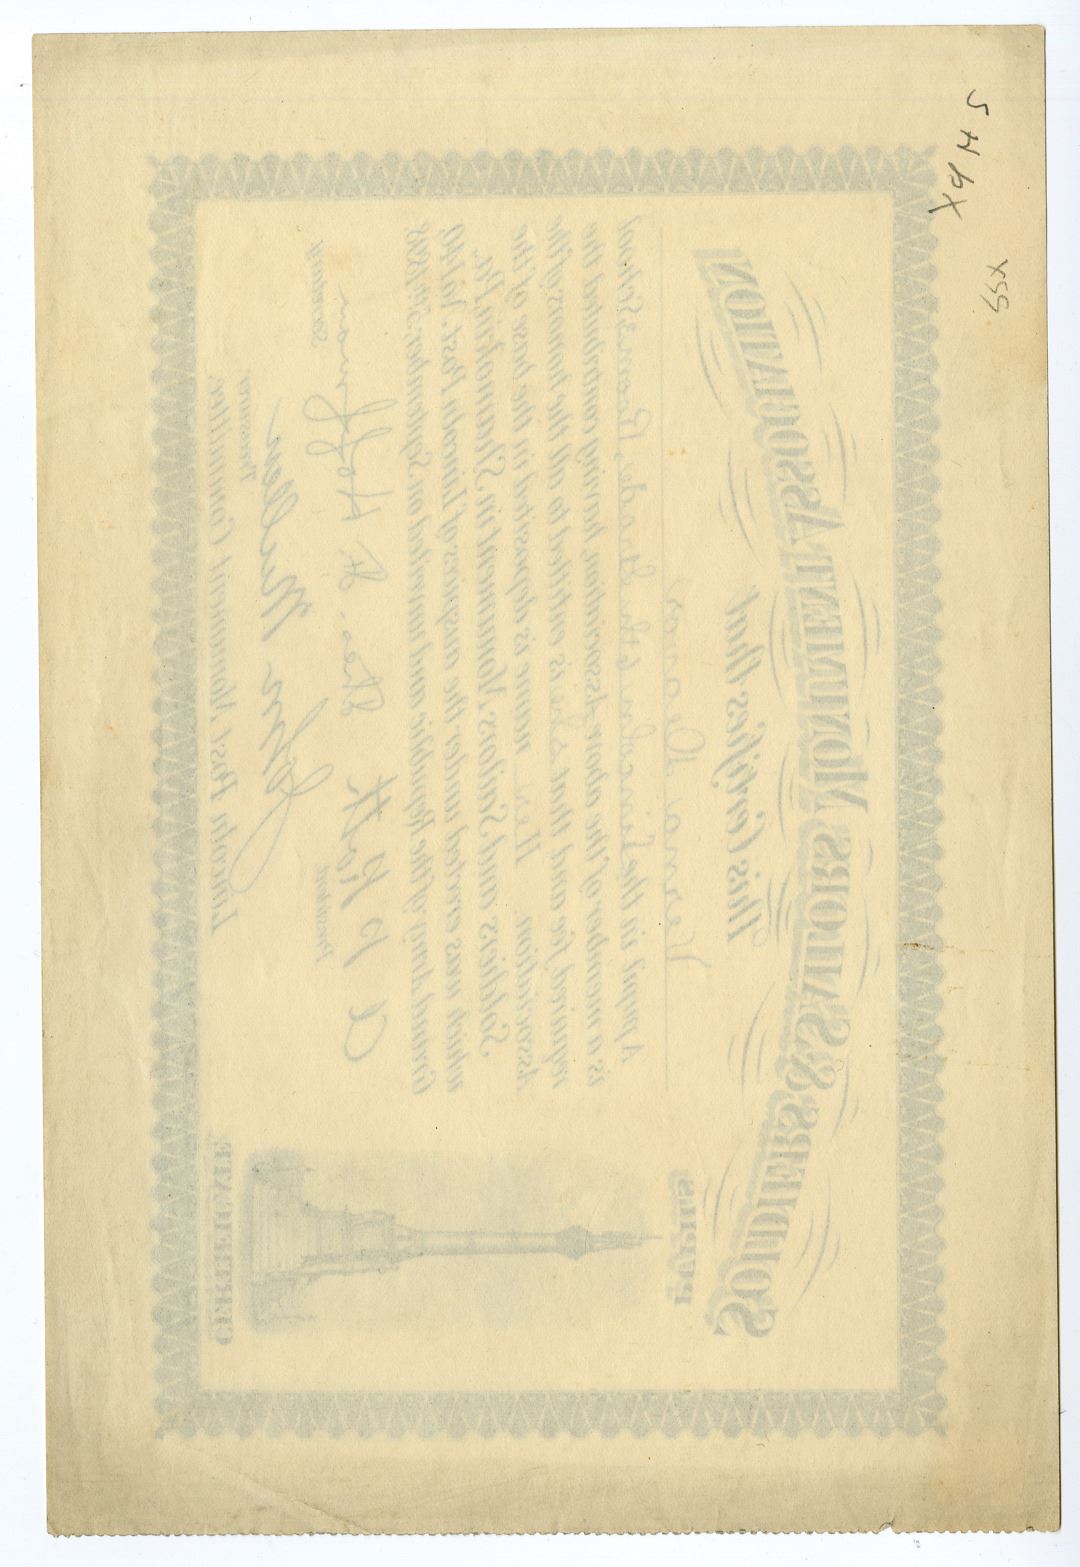 SOLDIERS & SAILORS MONUMENT ASSOCIATION
PUPILS
This Certifies that
A pupil in the Lincoln 4th Grade, School
is a member of the above Association, having contributed the
required fee and that she is entitled to all the honors of the
Association. Her name is deposited in the base of the
Soldiers and Sailors Monument in Shamokin, Pa.
which was erected under the auspices of Lincoln Post, No 140,
Grand Army of the Republic and unveiled on September
A P Roth
President
Hoffman
Secretary
John Mullen
Treasurer
Lincoln Post Monument Committee.
CERTIFICATE